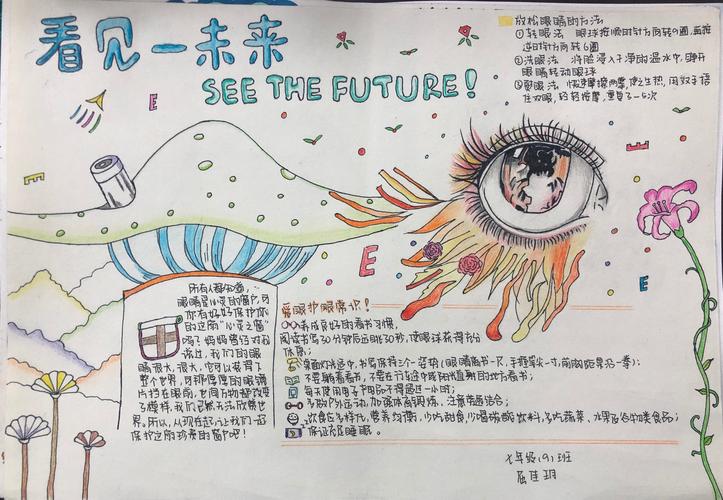 看见一未来
SEE THE FUTURE!
放松眼睛的方法
①转眼法 眼球按顺时针方向转6圈,再按
逆时针方向转6圈
②洗眼法 将脸浸入干净的温水中,睁开
眼睛转动眼球
③熨眼法 快速摩擦两掌,使之生热,用双手捂
住双眼,轻轻按摩,重复3-5次
E
E
E
E
E
所有人都知道,
眼睛是心灵的窗户,可
你有好好保护你
的这扇“心灵之窗”
吗?妈妈曾经对我
说过,我们的眼
睛很大,很大,它可以装得下
整个世界,可那厚厚的眼镜
片挡在眼前,世间万物都改变
了模样,我们已然无法欣赏世
界。所以,从现在起,让我们一起
保护这扇珍贵的窗户吧!
爱眼护眼常识!
养成良好的看书习惯,
阅读书写30分钟后远眺30秒,使眼球获得充分
休息;
桌面灯光适中,书写保持三个姿势(眼睛离书一尺,手握笔尖一寸,前胸距桌沿一拳);
不要躺着看书,不要在行车途中或阳光直射的地方看书;
每天使用电子产品不得超过一小时;
多放户外运动,加强体育锻炼、注意劳逸结合;
饮食多样化,营养均衡,少吃甜食,少喝碳酸饮料,多吃蔬菜、水果及谷物类食品;
保证充足睡眠。
七年级(9)班
屈佳玥